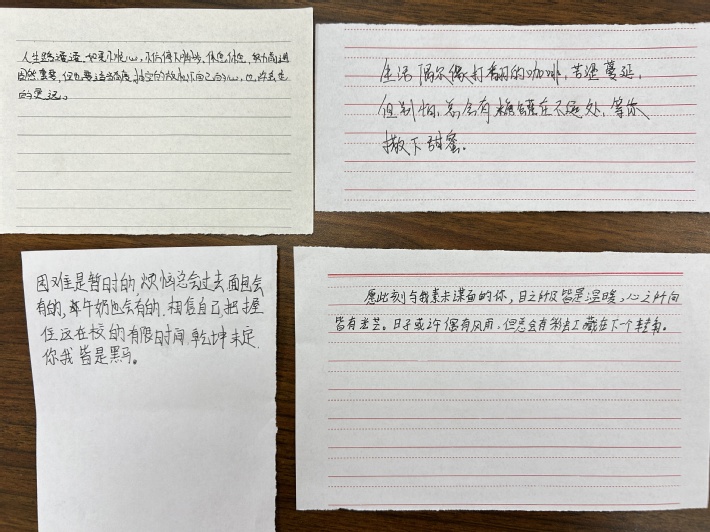 人生路漫漫,
休息休息,努力前进
固然重要,但也要适当
的更远。
生活偶尔像打翻的咖啡,苦涩蔓延,
但别怕,总会有糖罐在不远处,等你
撒下甜蜜。
困难是暂时的,烦恼总会过去,面包会
有的,牛奶也会有的,相信自己把握
住这在校的有限时间,乾坤未定,
你我皆是黑马。
愿此刻与我素未谋面的你,目之所及皆是温暖,心之所向
皆有光芒。日子或许偶有风雨,但总会有彩虹藏在下一个转角。